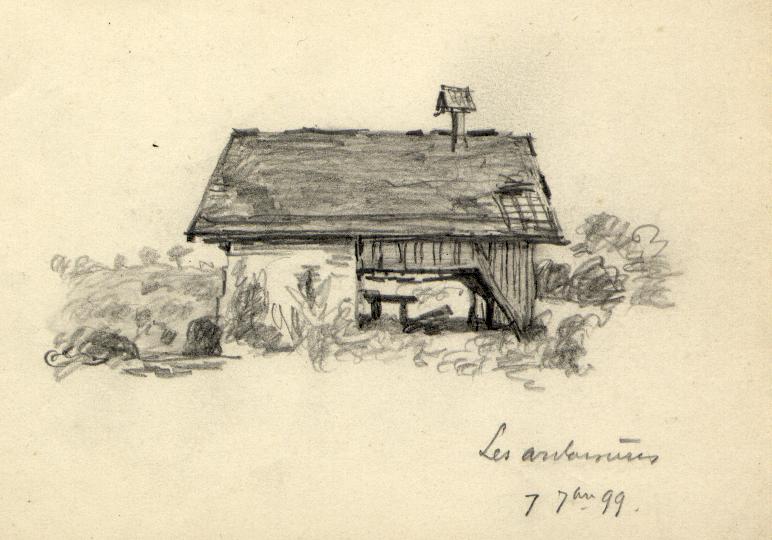 Les ardoisières
7 7bre 99.